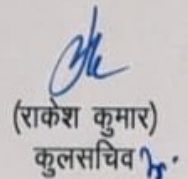 (राकेश कुमार)
कुलसचिव